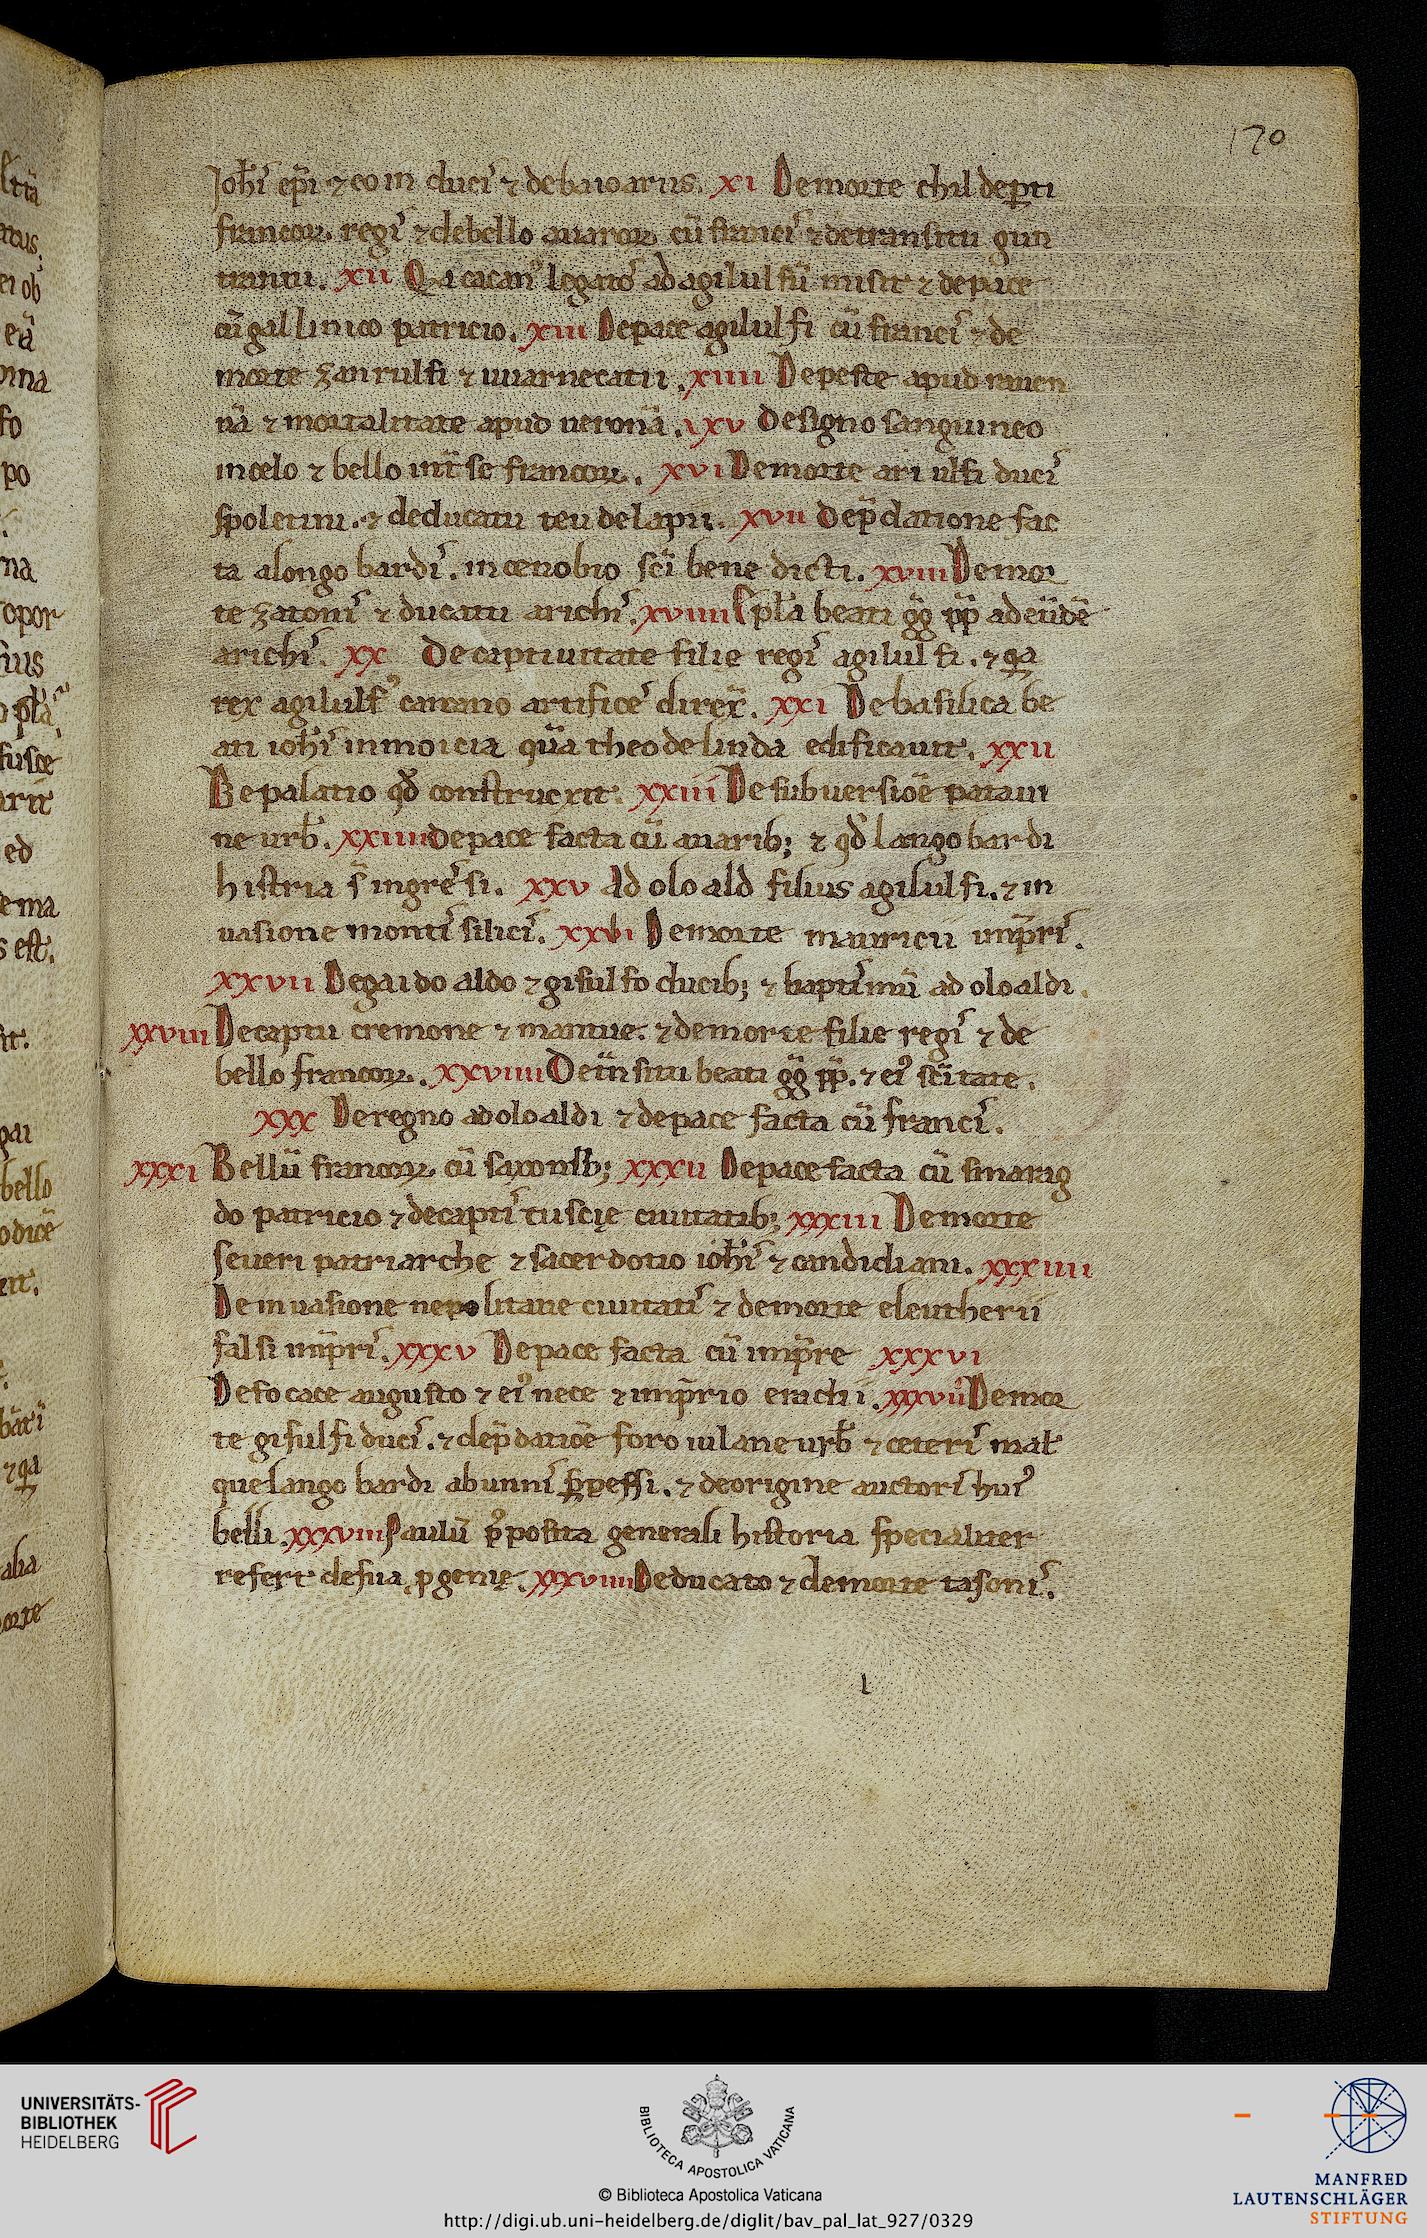 170
Joh̄i ep̄i ⁊ eoin duci᷒ ⁊ debaioariis. xi Demorte childeꝑti
francoꝝ regi᷒ ⁊ debello auaroꝝ cū franci᷒ ⁊ detransitu gun
tranni. xii Qͣ cacanꝰ legato᷒ ad agilulfū misit ⁊ depace
cū gallinico patricio. xiii Depace agilulfi cū franci᷒ ⁊ de
morte zanrulfi ⁊ uuarnecatii. xiiii Depeste apud rauen
nā ⁊ mortalitate apud neronā. ixv Designo sanguineo
incelo ⁊ bello int̄ se francoꝝ. xvi Demorte ariulfi duci᷒
spoletini. ⁊ deducatu teudelapii. xvii dep̄datione fac
ta alongobardi᷒. incenobio sc̄i benedicti. xviii Demor
te zatoni᷒ ⁊ ducatu arichi᷒. xviiii Epl̄a beati gḡ pp̄ adeūdē
arichi᷒. xx Decaptiuitate filie regi᷒ agilulfi. ⁊ qͣ
rex agilulfꝰ cacano artifice᷒ direx̄. xxi Debasilica be
ati ioh̄i᷒ inmoicia quā theodelinda edificauit. xxii
Depalatio qd̄ construxit. xxiii Desubuersiōe pataui
ne urb᷒. xxiiii depace facta cū auarib; ⁊ qd̄ langobardi
histria s̄ ingre᷒si. xxv Adoloald filius agilulfi. ⁊ in
uasione monti᷒ silici᷒. xxvi Demorte mauricii imp̄ri᷒.
xxvii Degaidoaldo ⁊ gisulfo ducib; ⁊ bapti᷒mū adoloaldi.
xxviii Decaptu cremone ⁊ mantue. ⁊ demorte filie regi᷒ ⁊ de
bello francoꝝ. xxviiii Detn̄situ beati gḡ pp̄. ⁊ eiꝰ sc̄itate.
xxx Deregno adoloaldi ⁊ depace facta cū franci᷒.
xxxi Bellū francoꝝ cū saxonib; xxxii Depace facta cū smarag
do patricio ⁊ decapti᷒ tuscię ciuitatib; xxxiii Demorte
seueri patriarche ⁊ sacerdotio ioh̄i᷒ ⁊ candidiani. xxxiiii
Deinuasione nepolitane ciuitati᷒ ⁊ demorte eleutherii
falsi imp̄ri᷒. xxxv Depace facta cū imp̄re xxxvi
Defocace augusto ⁊ eiꝰ nece ⁊ imp̄rio eraclii. xxxvii Demor
te gisulfi duci᷒. ⁊ dep̄datiōe foroiulane urb᷒ ⁊ ceteri᷒ mal᷒
quelangobardi abunni᷒ ꝑpessi. ⁊ deorigine auctori᷒ huiꝰ
belli. xxxviii Paulū pꝰposita generali historia specialiter
refert desua ꝓgenię. xxxviiii Deducato ⁊ demorte tasoni᷒.
UNIVERSITÄTS-
BIBLIOTHEK
HEIDELBERG
BIBLIOTECA APOSTOLICA VATICANA
© Biblioteca Apostolica Vaticana
http://digi.ub.uni-heidelberg.de/diglit/bav_pal_lat_927/0329
MANFRED
LAUTENSCHLÄGER
STIFTUNG